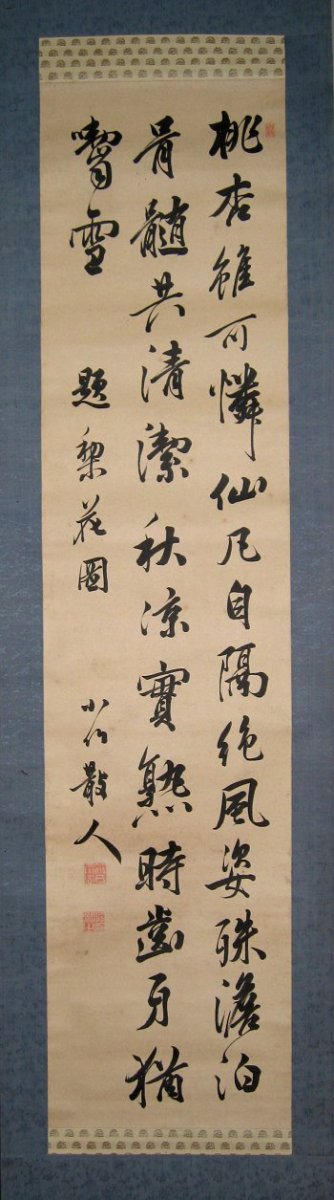 桃杏雖可憐仙凡自隔絶風姿殊澹泊
骨髓共清潔秋凉實熟時齒牙猶
嚼雪 題梨花圖 小竹散人